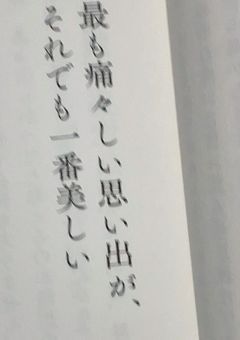 最も痛々しい思い出が、
それでも一番美しい